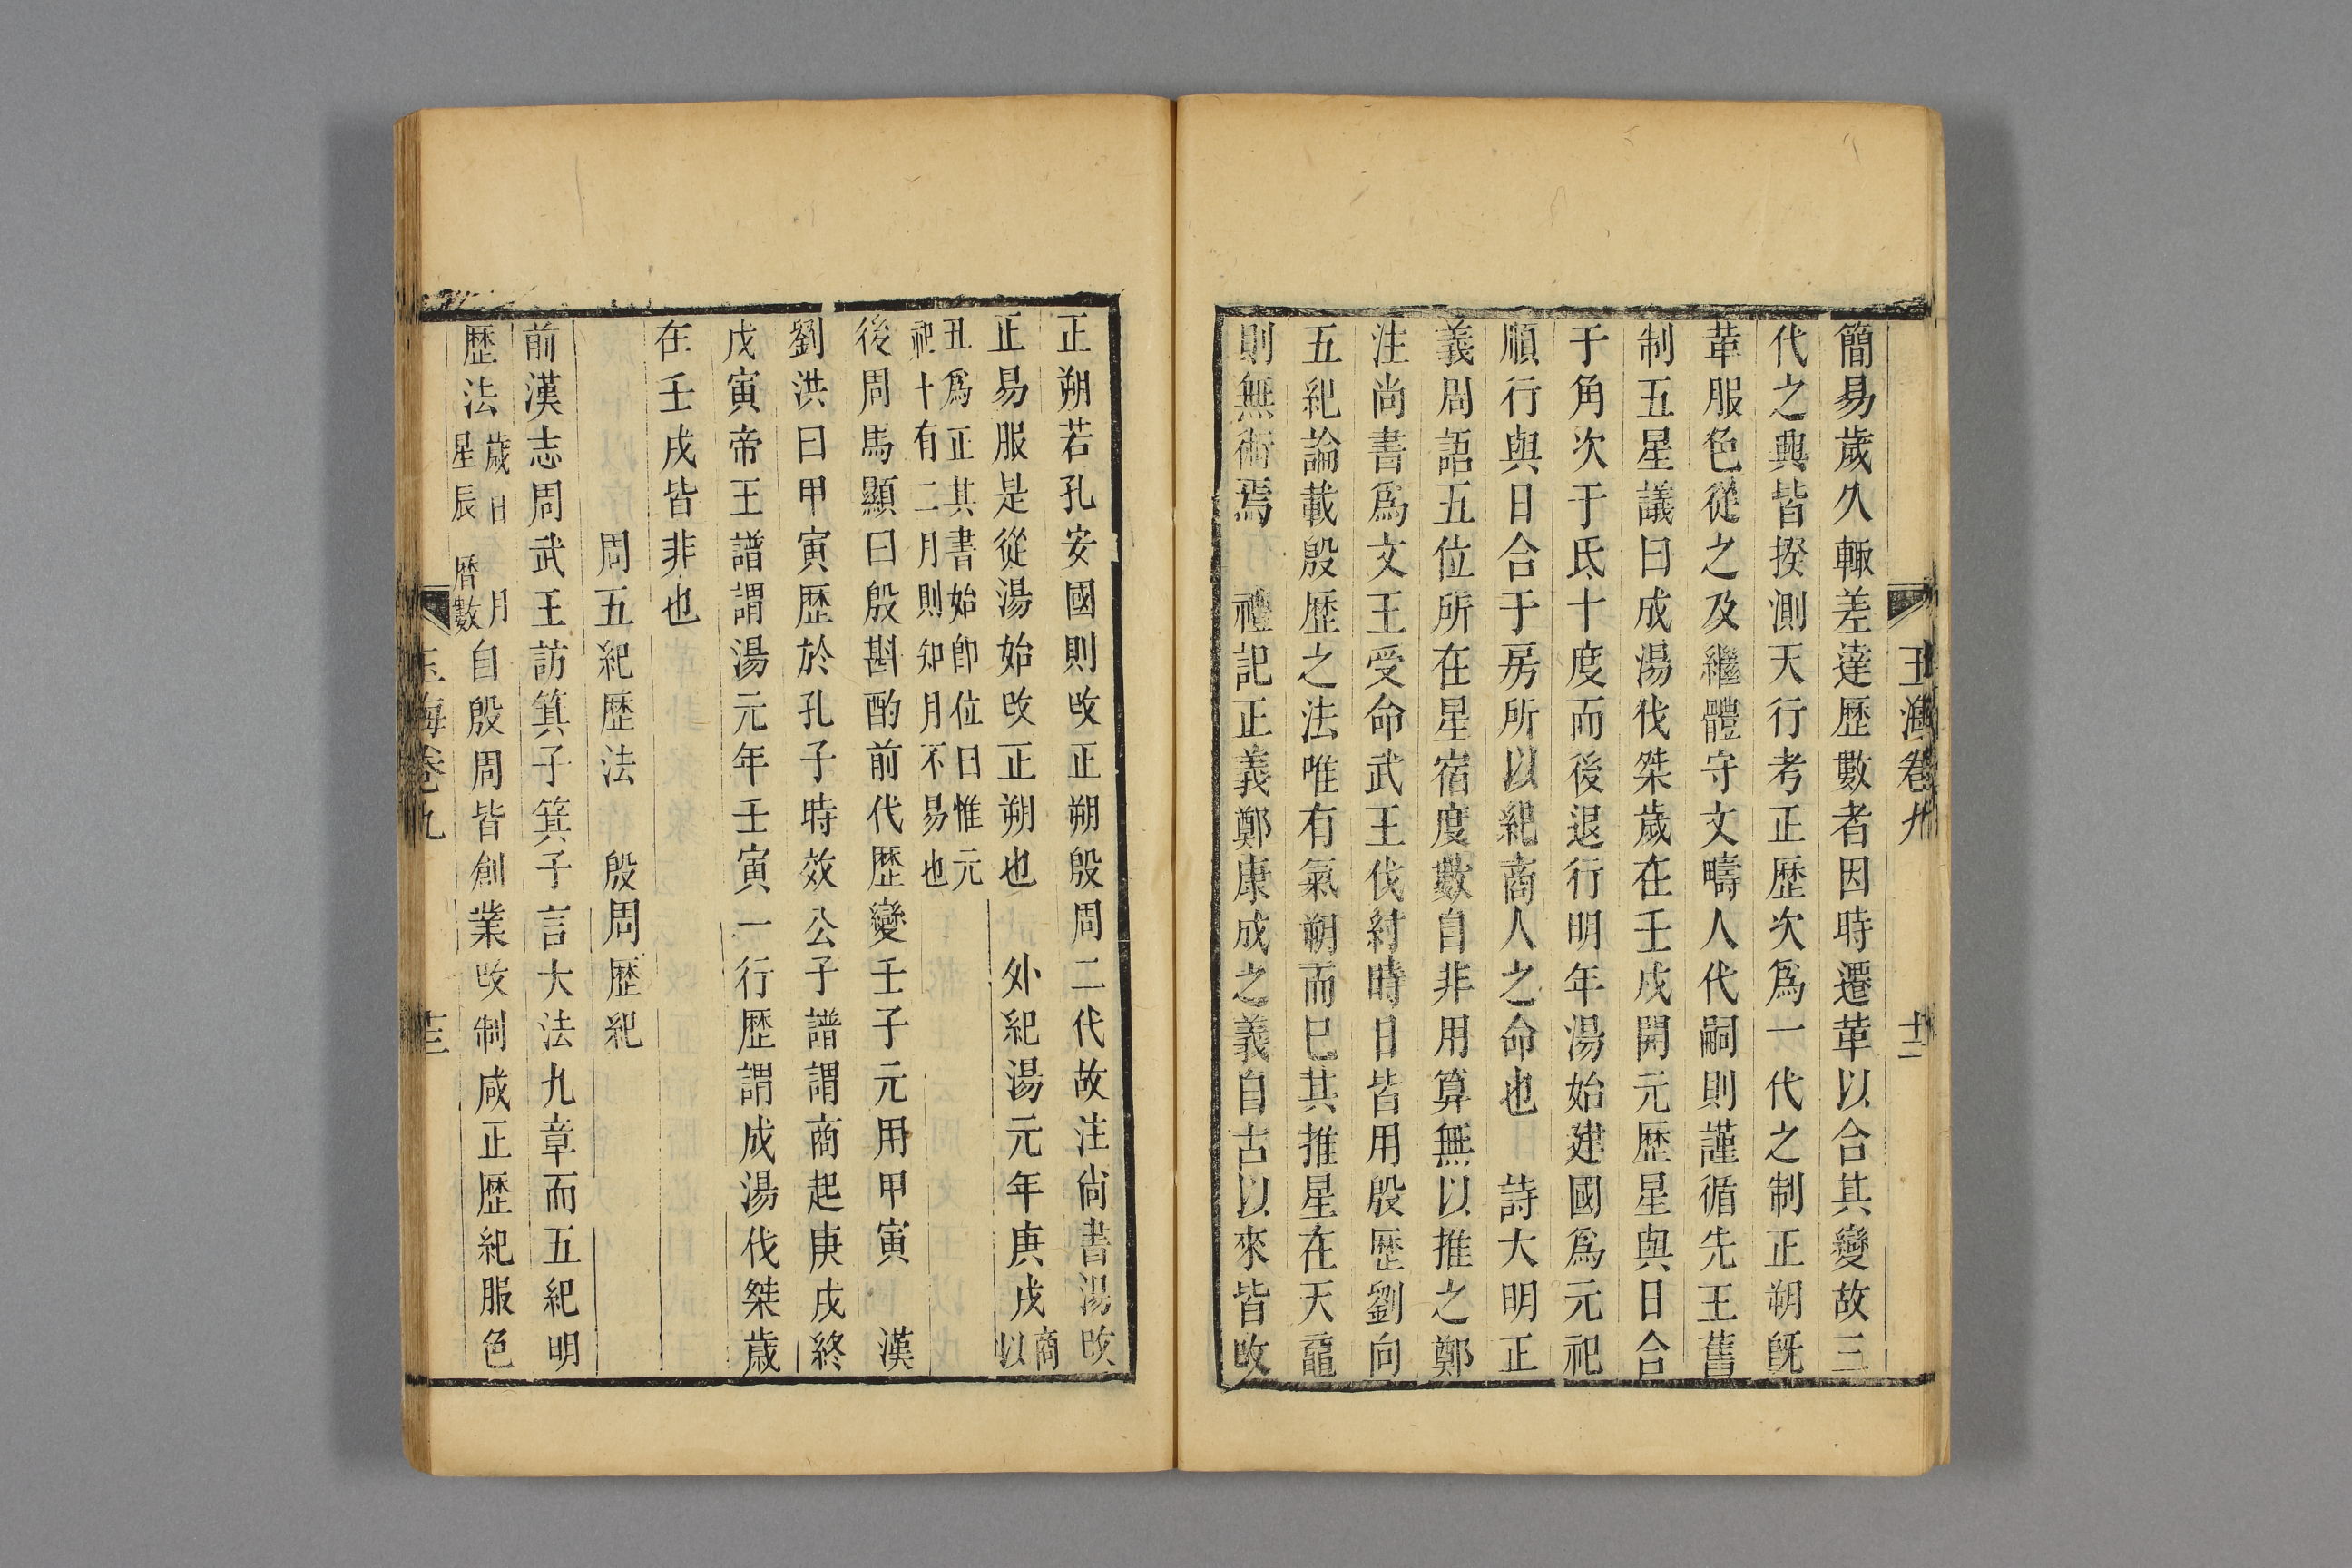 玉海卷九
十二
簡易歲久輙差達歷數者因時遷革以合其變故三
代之典皆揆測天行考正歷次爲一代之制正朔旣
革服色從之及繼體守文疇人代嗣則謹循先王舊
制五星議曰成湯伐桀歲在壬戌開元歷星與日合
于角次于氐十度而後退行明年湯始建國爲元祀
順行與日合于房所以紀商人之命也　詩大明正
義周語五位所在星宿度數自非用算無以推之鄭
注尚書爲文王受命武王伐紂時日皆用殷歷劉向
五紀論載殷歷之法唯有氣朔而已其推星在天黿
則無術焉　禮記正義鄭康成之義自古以來皆改
正朔若孔安國則改正朔殷周二代故注尚書湯改
正易服是從湯始改正朔也　外紀湯元年庚戌商以
丑爲正其書始卽位曰惟元
祀十有二月則知月不易也
後周馬顯曰殷斟酌前代歷變壬子元用甲寅　漢
劉洪曰甲寅歷於孔子時效公子譜謂商起庚戌終
戊寅帝王譜謂湯元年壬寅一行歷謂成湯伐桀歲
在壬戌皆非也
周五紀歷法　殷周歷紀
前漢志周武王訪箕子箕子言大法九章而五紀明
歷法歲日月星辰曆數自殷周皆創業改制咸正歷紀服色
玉海卷九
十三